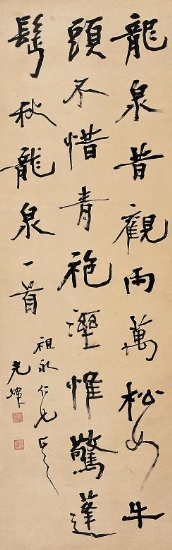 龍泉昔觀雨萬松如牛
頭不惜青袍溼惟驚蓬
髩秋龍泉一首
祖永仁兄正之
光煒